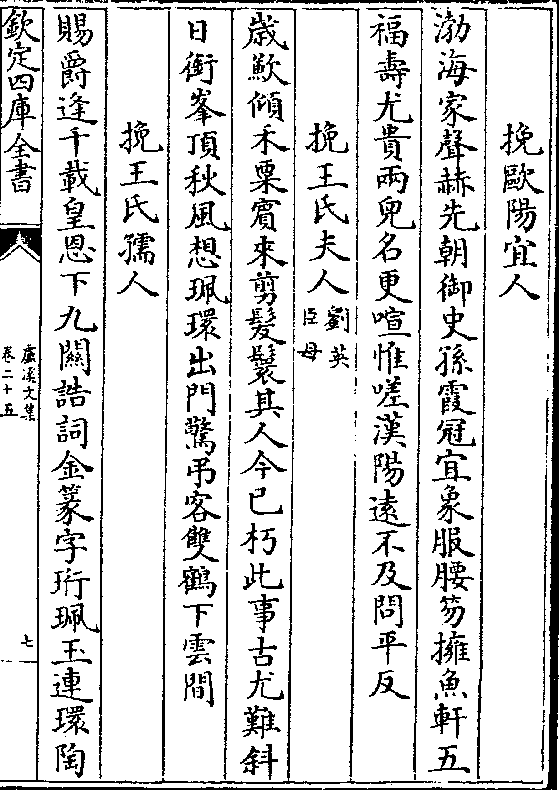 挽歐陽宜人
渤海家聲赫先朝御史孫霞冠宜象服腰笏擁魚軒五
福壽尤貴兩兒名更喧惟嗟漢陽遠不及問平反
挽王氏夫人劉英臣母
歲歉傾禾粟賓來剪髮鬟其人今已朽此事古尤難斜
日銜峯頂秋風想珮環出門驚弔客雙鶴下雲間
挽王氏孺人
賜爵逢千載皇恩下九關誥詞金篆字珩珮玉連環陶
欽定四庫全書
盧溪文集
卷二十五
七